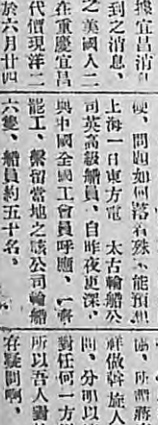 據宜昌消
到之消息、
之美國人二
在重慶宜昌
代價現洋二
於六月廿四
硬、問題如何落着殊不能預想
上海一日東方電　太古輪船公
司英高級船員、自昨夜更深、
與中國全國工會員呼應、一齊
罷工、繫留當地之該公司輪船
六隻、船員約五十名、
祥做幹旋人
間、分明以
對任何一方
所以吾人對於
在疑問啊、